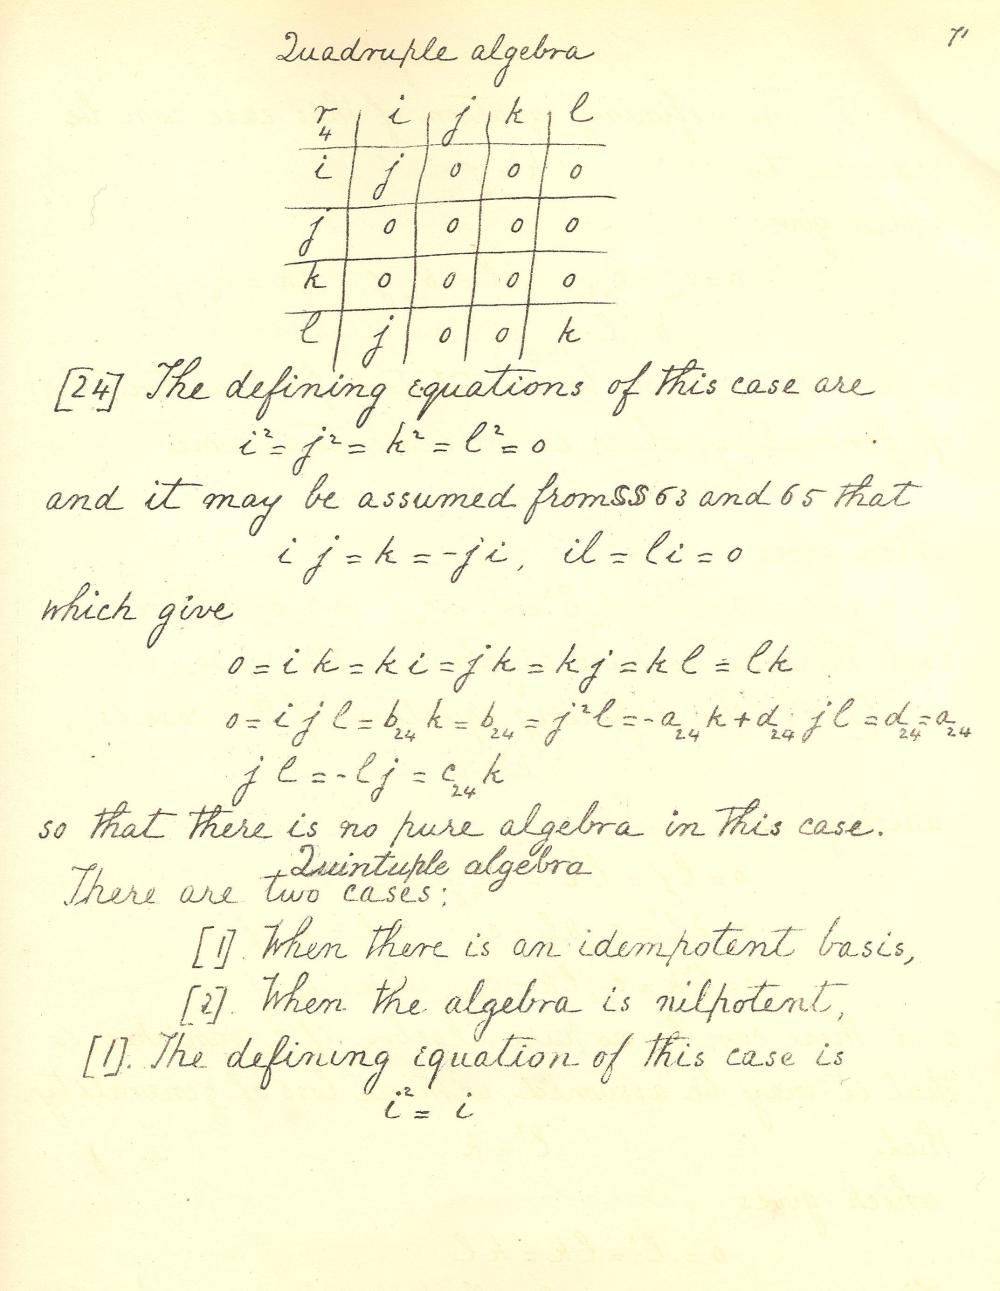 71
Quadruple algebra
r₄ | i | j | k | l
i | j | 0 | 0 | 0
j | 0 | 0 | 0 | 0
k | 0 | 0 | 0 | 0
l | j | 0 | 0 | k
[24] The defining equations of this case are
i² = j² = k² = l² = 0
and it may be assumed from §§ 63 and 65 that
i j = k = -j i, il = li = 0
which give
0 = i k = k i = j k = k j = k l = l k
0 = i j l = b₂₄ k = b₂₄ = j² l = -a₂₄ k + d₂₄ j l = d₂₄ = a₂₄
j l = - l j = c₂₄ k
so that there is no pure algebra in this case.
Quintuple algebra
There are two cases:
[1]. When there is an idempotent basis,
[2]. When the algebra is nilpotent,
[1]. The defining equation of this case is
i² = i